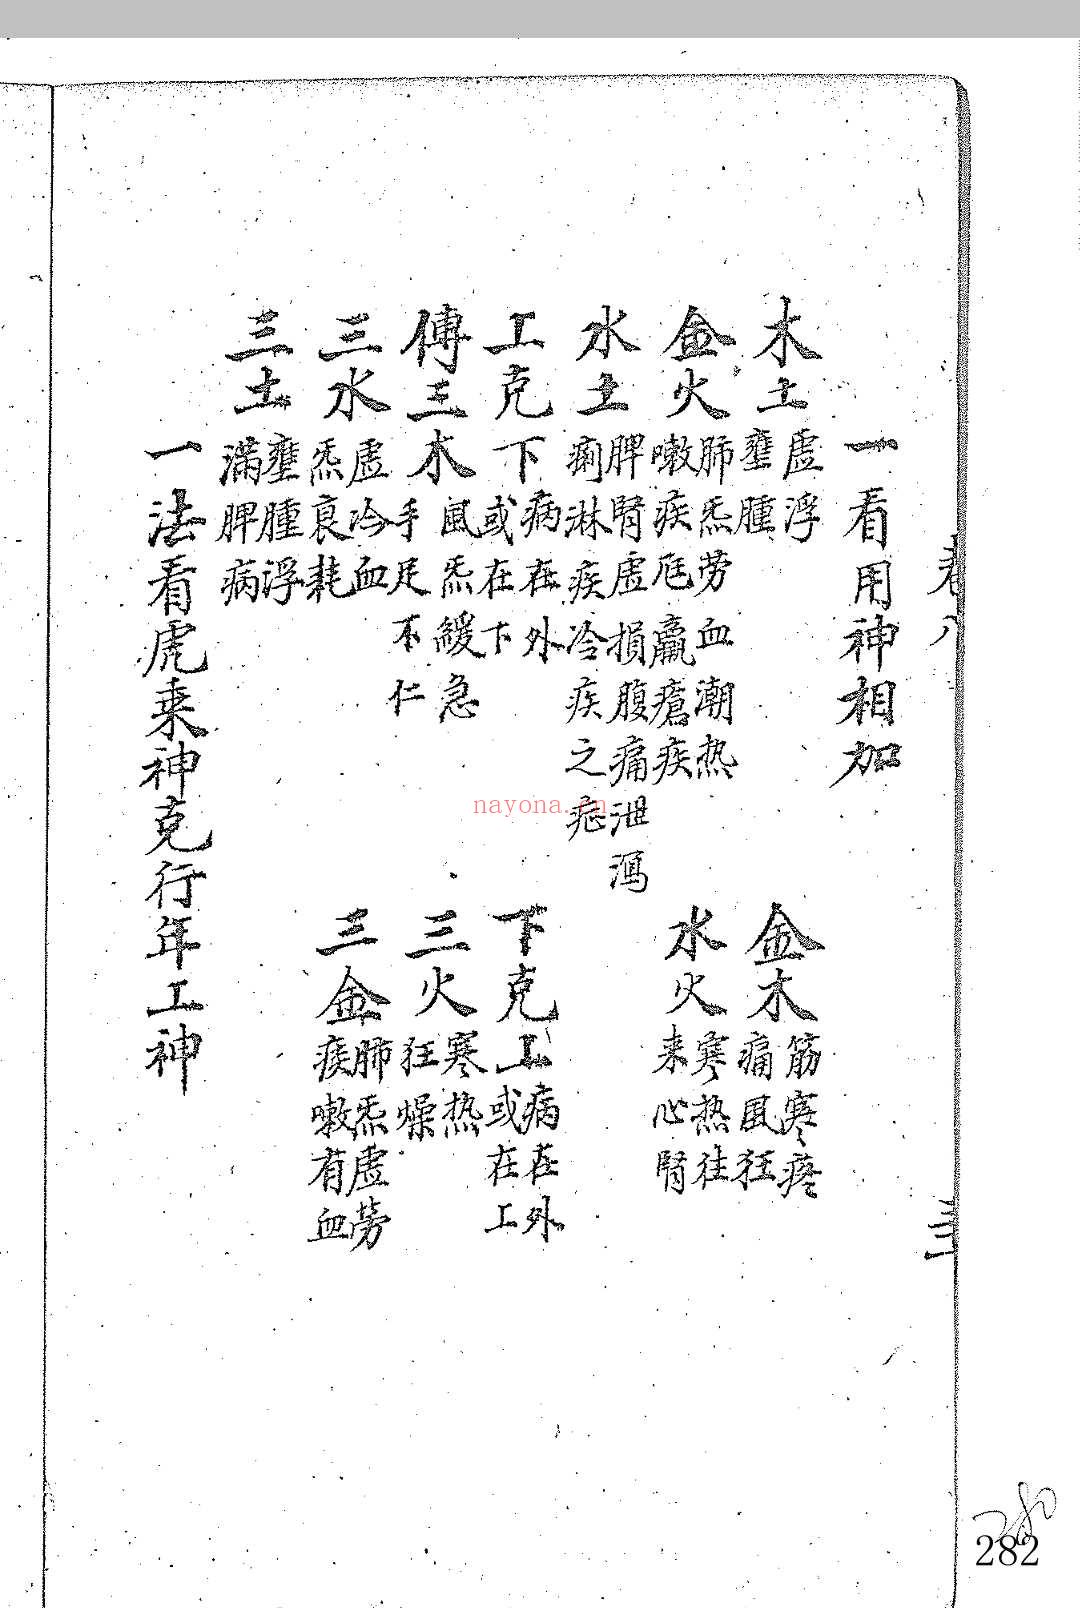 卷八
三
一看用神相加
木土
虛浮
壅腫
金木
筋寒疼
痛風狂
金火
肺炁劳血潮热
嗽疾尫羸瘡疾
水火
寒热往
来心腎
水土
脾腎虛損腹痛泄瀉
痢淋疾冷疾之
工克下
病在外
或在下
下克工
病在外
或在工
傅三木
風炁緩急
手足不仁
三火
寒热
狂燥
三水
虛冷血
炁衰耗
三金
肺炁虛劳
疾嗽有血
三土
壅腫浮
滿脾病
一法看虎乗神克行年工神
nayona.cn
282